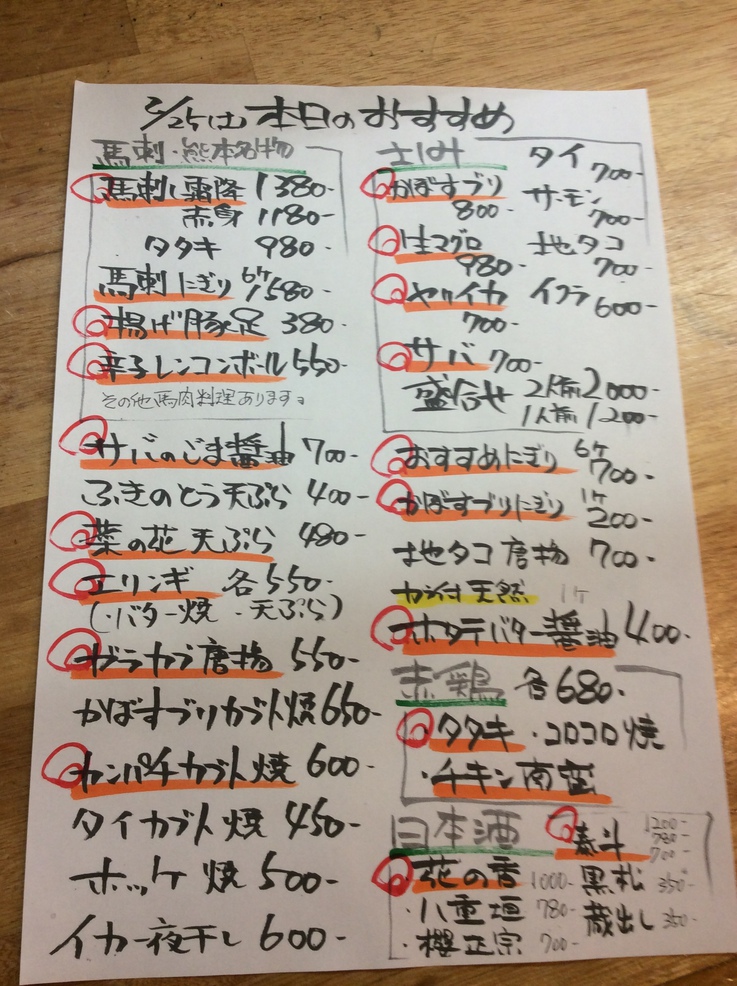 2/25(土)本日のおすすめ
馬刺・熊本名物
馬刺し霜降 1380-
赤身 1180-
タタキ 980-
馬刺にぎり 6ケ 1580-
揚げ豚足 380-
辛子レンコンボール 550-
その他馬肉料理あります。
サバのごま醤油 700-
ふきのとう天ぷら 400-
菜の花天ぷら 480-
エリンギ 各550-
(・バター焼 ・天ぷら)
ガラカブ唐揚 550-
かぼすブリカブト焼 650-
カンパチカブト焼 600-
タイカブト焼 450-
ホッケ焼 500-
イカ一夜干し 600-
さしみ
タイ 700-
かぼすブリ 800-
サーモン 700-
生マグロ 980-
地タコ 700-
ヤリイカ 700-
イクラ 600-
サバ 700-
盛合せ 2人前 2000-
1人前 1200-
おすすめにぎり 6ケ 700-
かぼすブリにぎり 1ケ 200-
地タコ唐揚 700-
カラ付天然 1ケ
ホタテバター醤油 400-
赤鶏 各680-
タタキ ・コロコロ焼
・チキン南蛮
日本酒
泰斗 1200- 780- 700-
花の香 1000-
黒松 350-
・八重垣 780-
蔵出し 350-
・櫻正宗 700-